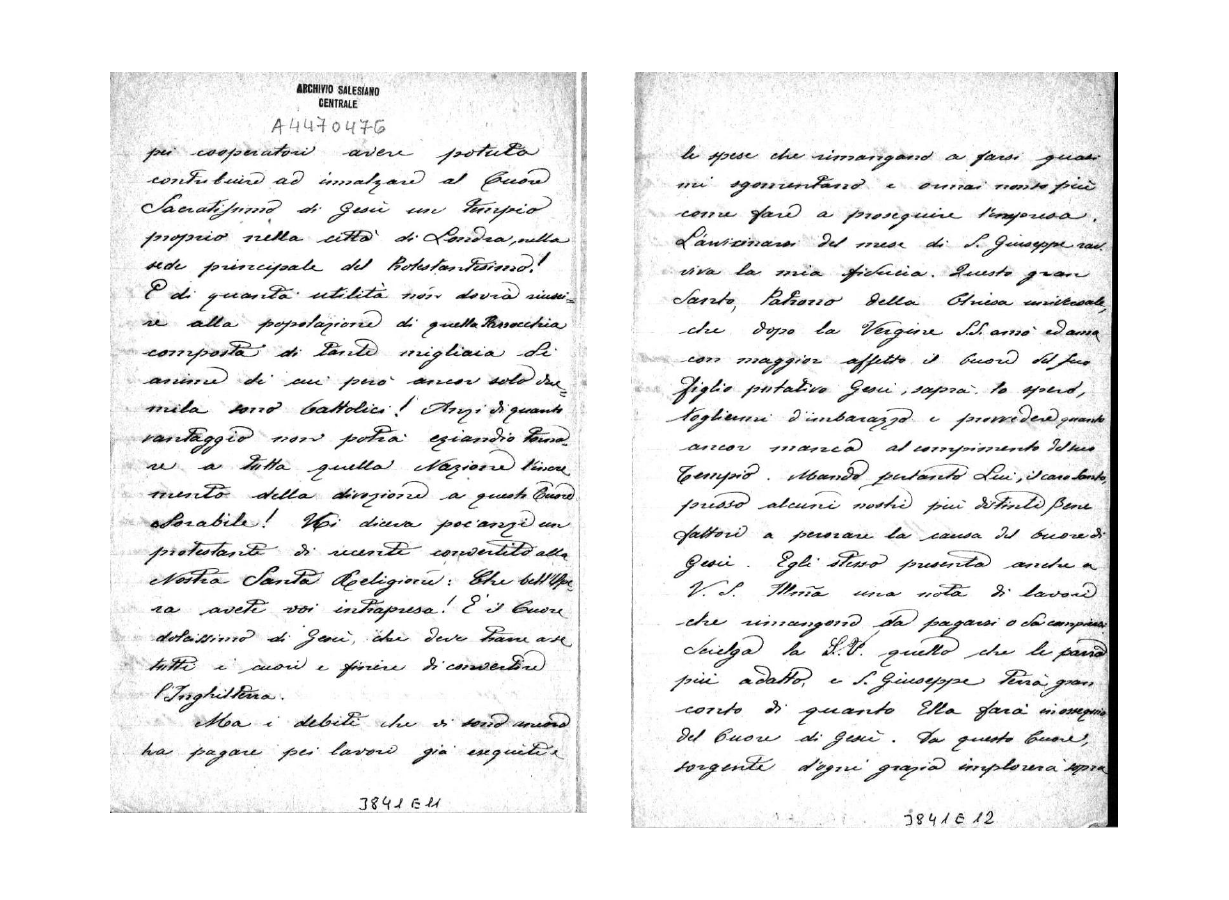 ARCHIVIO SALESIANO
CENTRALE
A4470476
pei cooperatori avere potuto
contribuire ad innalzare al Cuore
Sacratissimo di Gesù un tempio
proprio nella città di Londra, nella
sede principale del Protestantismo!
E di quanta utilità non dovrà riusci=
re alla popolazione di quella Parrocchia
composta di tante migliaia di
anime di cui però ancor solo due=
mila sono Cattolici! Anzi di quanto
vantaggio non potrà eziandio torna=
re a tutta quella Nazione l'incre
mento della divozione a questo Cuore
Adorabile! Mi diceva poc'anzi un
protestante di recente convertito alla
Nostra Santa Religione: Che bell'Ope=
ra avete voi intrapresa! È il Cuore
dolcissimo di Gesù, che deve trarre a se
tutti i cuori e finire di convertire
l'Inghilterra.
Ma i debiti che vi sono ancora
ha pagare pei lavori già eseguiti e
J841E11
le spese che rimangono a farsi quasi
mi sgomentano e ormai non so più
come fare a proseguire l'impresa.
L'avvicinarsi del mese di S. Giuseppe rav
viva la mia fiducia. Questo gran
Santo, Patrono della Chiesa universale,
che dopo la Vergine SS. amò ed ama
con maggior affetto il Cuore del suo
figlio putativo Gesù, saprà, lo spero,
togliermi d'imbarazzo e provvedere quanto
ancor manca al compimento del suo
Tempio. Mando pertanto Lui, il caro Santo,
presso alcuni nostri più distinti Bene
fattori a perorare la causa del Cuore di
Gesù. Egli stesso presenta anche a
V. S. Illma una nota di lavori
che rimangono da pagarsi o da compiersi
Scielga la S.V. quello che le parrà
più adatto, e S. Giuseppe terrà gran
conto di quanto Ella farà in ossequio
del Cuore di Gesù. Da questo Cuore,
sorgente d'ogni grazia implorerà sopra
J841E12